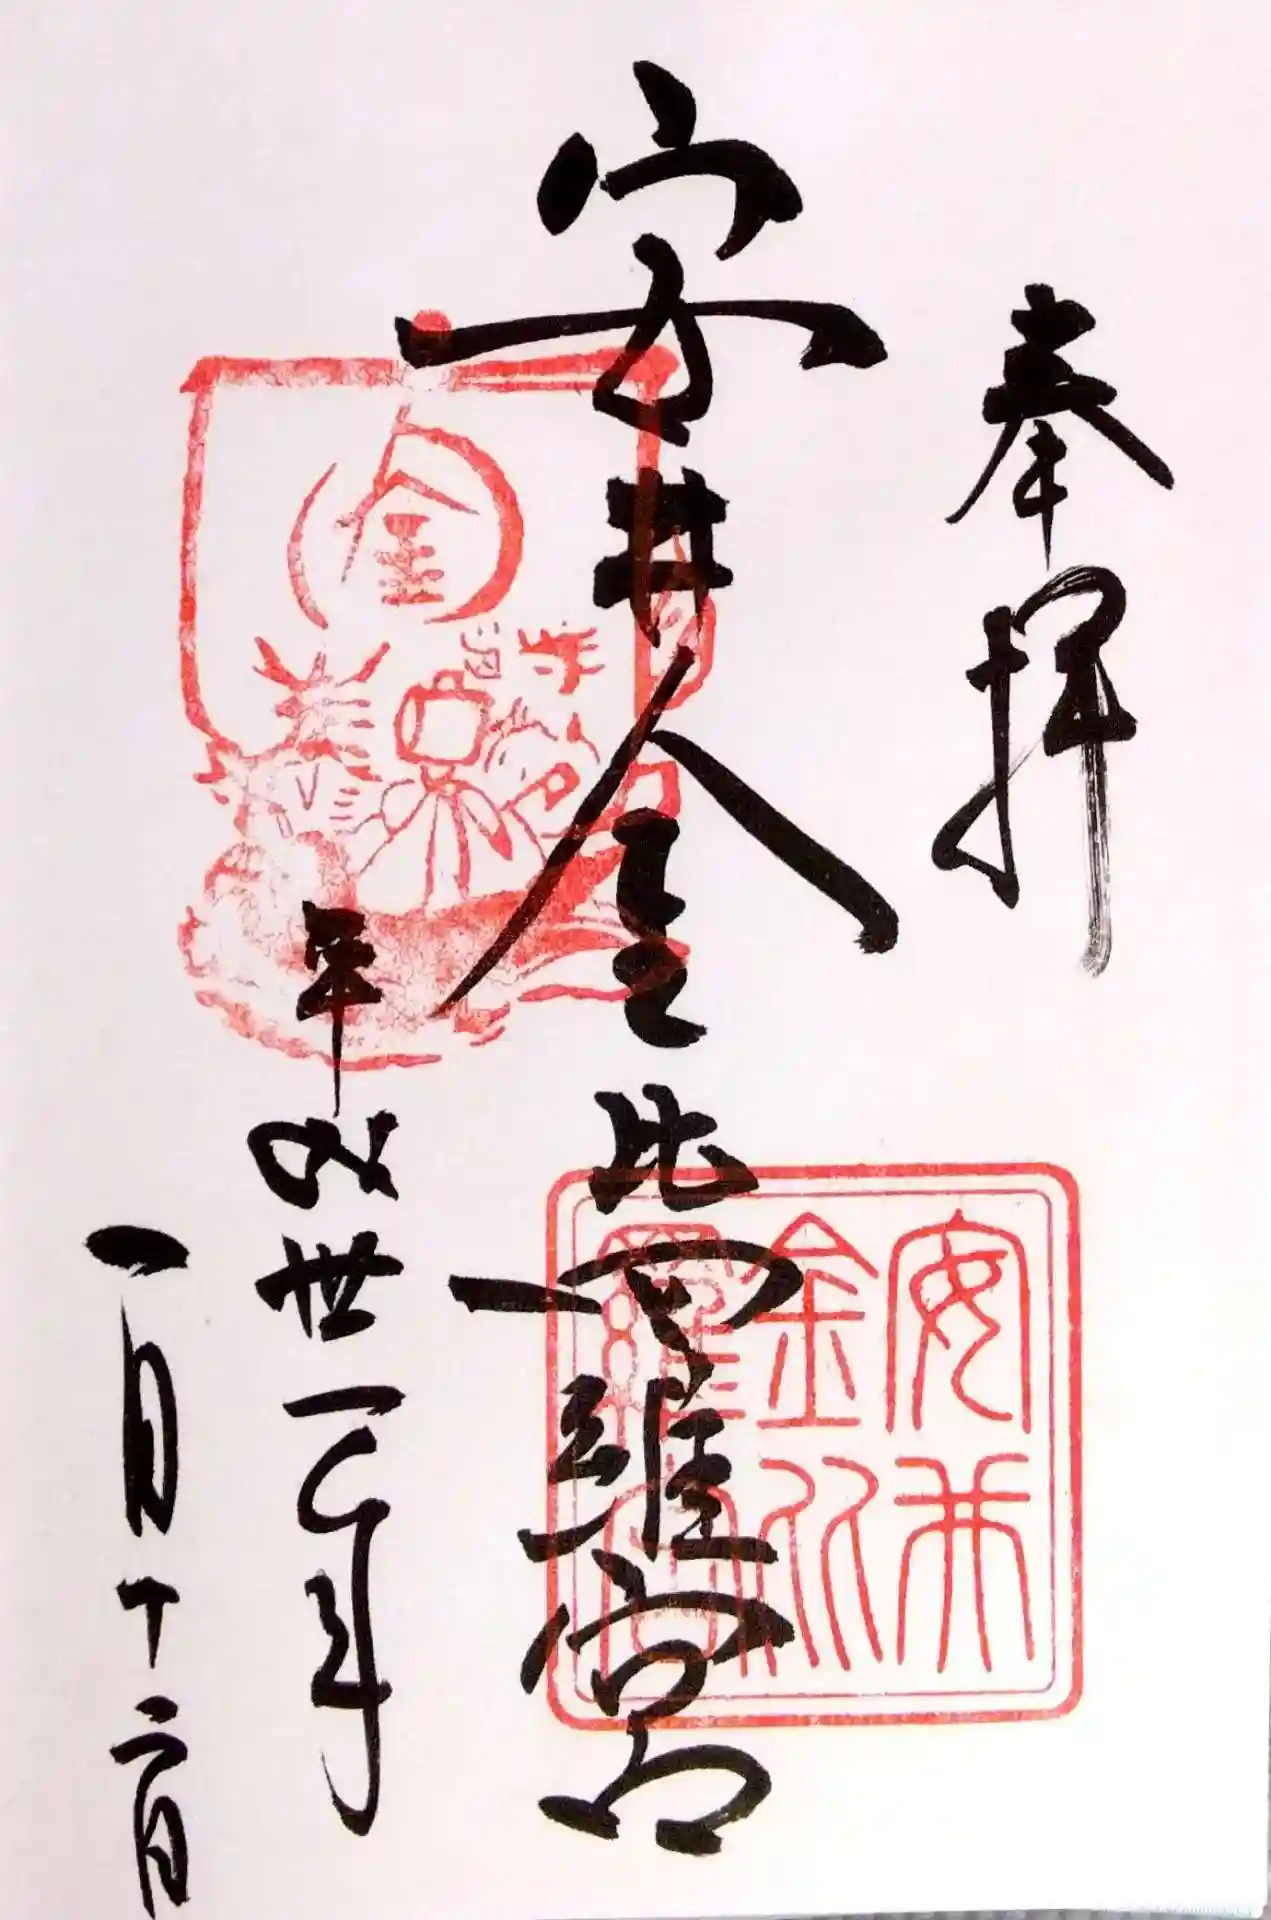 奉拝
安井金比羅宮
平成卅一年
一月十二日
金
安井
金比
羅宮